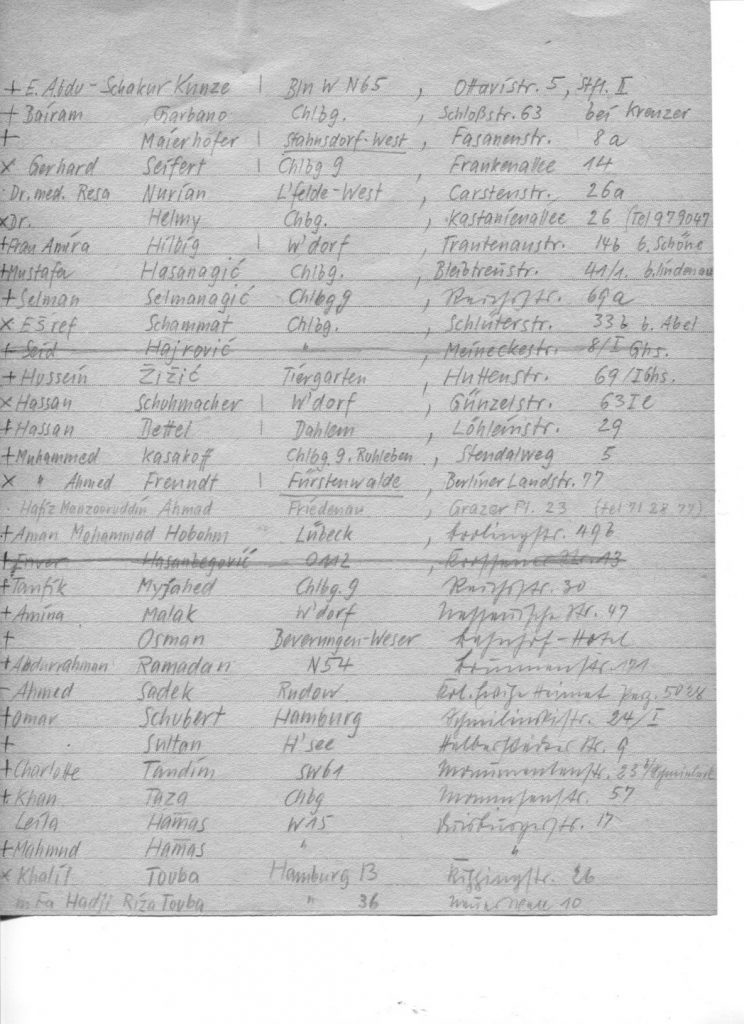 + E. Abdu-Schakur Kunze | Bln W N65 , Ottavistr. 5, Stfl. II
+ Bairam Garbano Chlbg. , Schloßstr. 63 bei Krenzer
+ Maierhofer | Stahnsdorf-West , Fasanenstr. 8a
x Gerhard Seifert | Chlbg 9 , Frankenallee 14
Dr. med. Resa Nurian L'felde-West , Carstenstr. 26a
x Dr. Helmy Chbg. , Kastanienallee 26 (Tel 979047
+ Frau Amira Hilbig | W'dorf , Trautenaustr. 14b b. Schöne
+ Mustafa Hasanagić Chlbg. , Bleibtreustr. 41/1. b. lindenau
+ Selman Selmanagić Chlbg 9 , Reichsstr. 69a
x Ešref Schammat Chlbg. , Schlüterstr. 33b b. Abel
+ Seid Hajrović " , Meineckestr. 8/I Ghs.
+ Hussein Žižić Tiergarten , Huttenstr. 69/I Ghs.
x Hassan Schuhmacher | W'dorf , Günzelstr. 63 I
+ Hassan Bettel | Dahlem , Löhleinstr. 29
+ Muhammed Kasakoff Chlbg. 9. Ruhleben , Stendalweg 5
x " Ahmed Freundt | Fürstenwalde , Berliner Landstr. 77
Hafiz Manzooruddin Ahmad Friedenau , Grazer Pl. 23 (tel 71 28 77)
+ Aman Mohammad Hobohm Lübeck , 49b
+ Enver Hasanbegović O112 , Str. 13
+ Taufik Chlbg. 9 Reichsstr. 30
+ Amina Malak W'dorf Nassauische Str. 47
+ Osman Beverungen-Weser Bahnhof-Hotel
+ Abdurrahman Ramadan N54 Brunnenstr. 191
- Ahmed Sadek Rudow Kol. Ewige Heimat Parz. 5028
+ Omar Schubert Hamburg 24/I
+ Sultan H'see Halberstädter Str. 9
+ Charlotte Tandim SW61 Monumentenstr. 23
+ Khan Taza Chbg Mommsenstr. 57
Leila Ham̄as W15 Duisburgerstr. 17
+ Mahmud Ham̄as " "
x Khalil Touba Hamburg 13 Kissingstr. 26
in Fa Hadji Riža Touba " 36 Neuer Wall 10